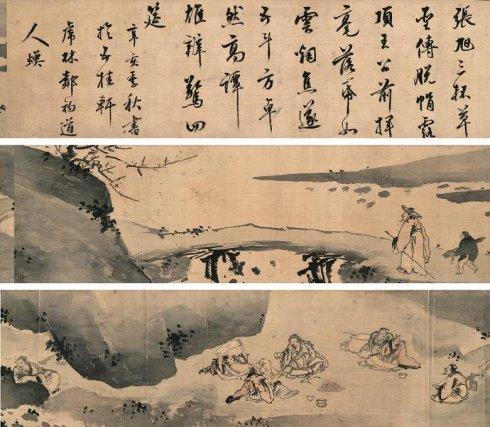 張旭三杯草
聖傳脫帽露
頂王公前揮
毫落紙如
雲烟焦遂
五斗方卓
然高譚
雄辯驚四
筵
辛亥季秋書
於五桂軒
虎林 道
人